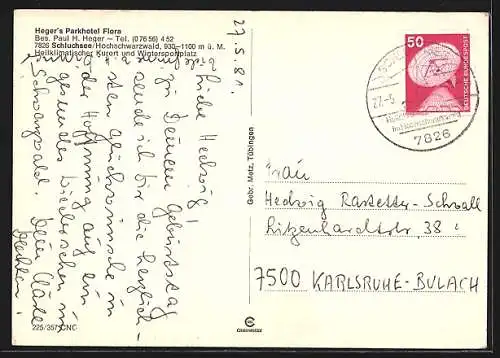 Heger's Parkhotel Flora
Bes. Paul H. Heger – Tel. (0 76 56) 4 52
7826 Schluchsee/Hochschwarzwald, 930–1100 m ü. M.
Heilklimatischer Kurort und Wintersportplatz
27.5.81.
Liebe Hedwig!
Zu Deinem Geburtstag
sende ich Dir die herzlich-
sten Glückwünsche in
der Hoffnung auf ein
gesundes Wiedersehen im
Schwarzwald. Dein
225/357 CNC
Gebr. Metz, Tübingen
50
DEUTSCHE BUNDESPOST
27.-5.
7826
Frau
Hedwig Rastetter-Schwall
Litzenhardtstr. 38
7500 KARLSRUHE-BULACH